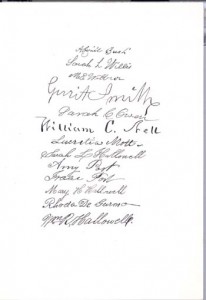 Abigail Bush
Sarah L Willis
Gerrit Smith
Sarah C Owen
William C. Nell
Lucretia Mott
Sarah L Hallowell
Amy Post
Isaac Post
Mary H Hallowell
Rhoda De Garmo
Wm R. Hallowell